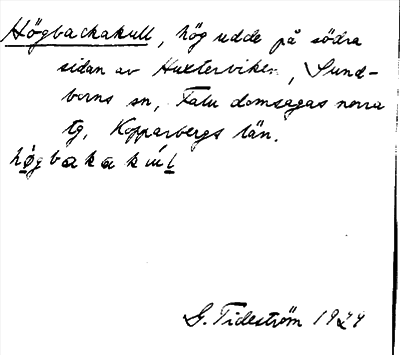 Högbackakull, hög udde på södra
sidan av Huxterviken, Sund-
borns sn, Falu domsagas norra
tg, Kopparbergs län.
högbakakúl
G. Tideström 1929